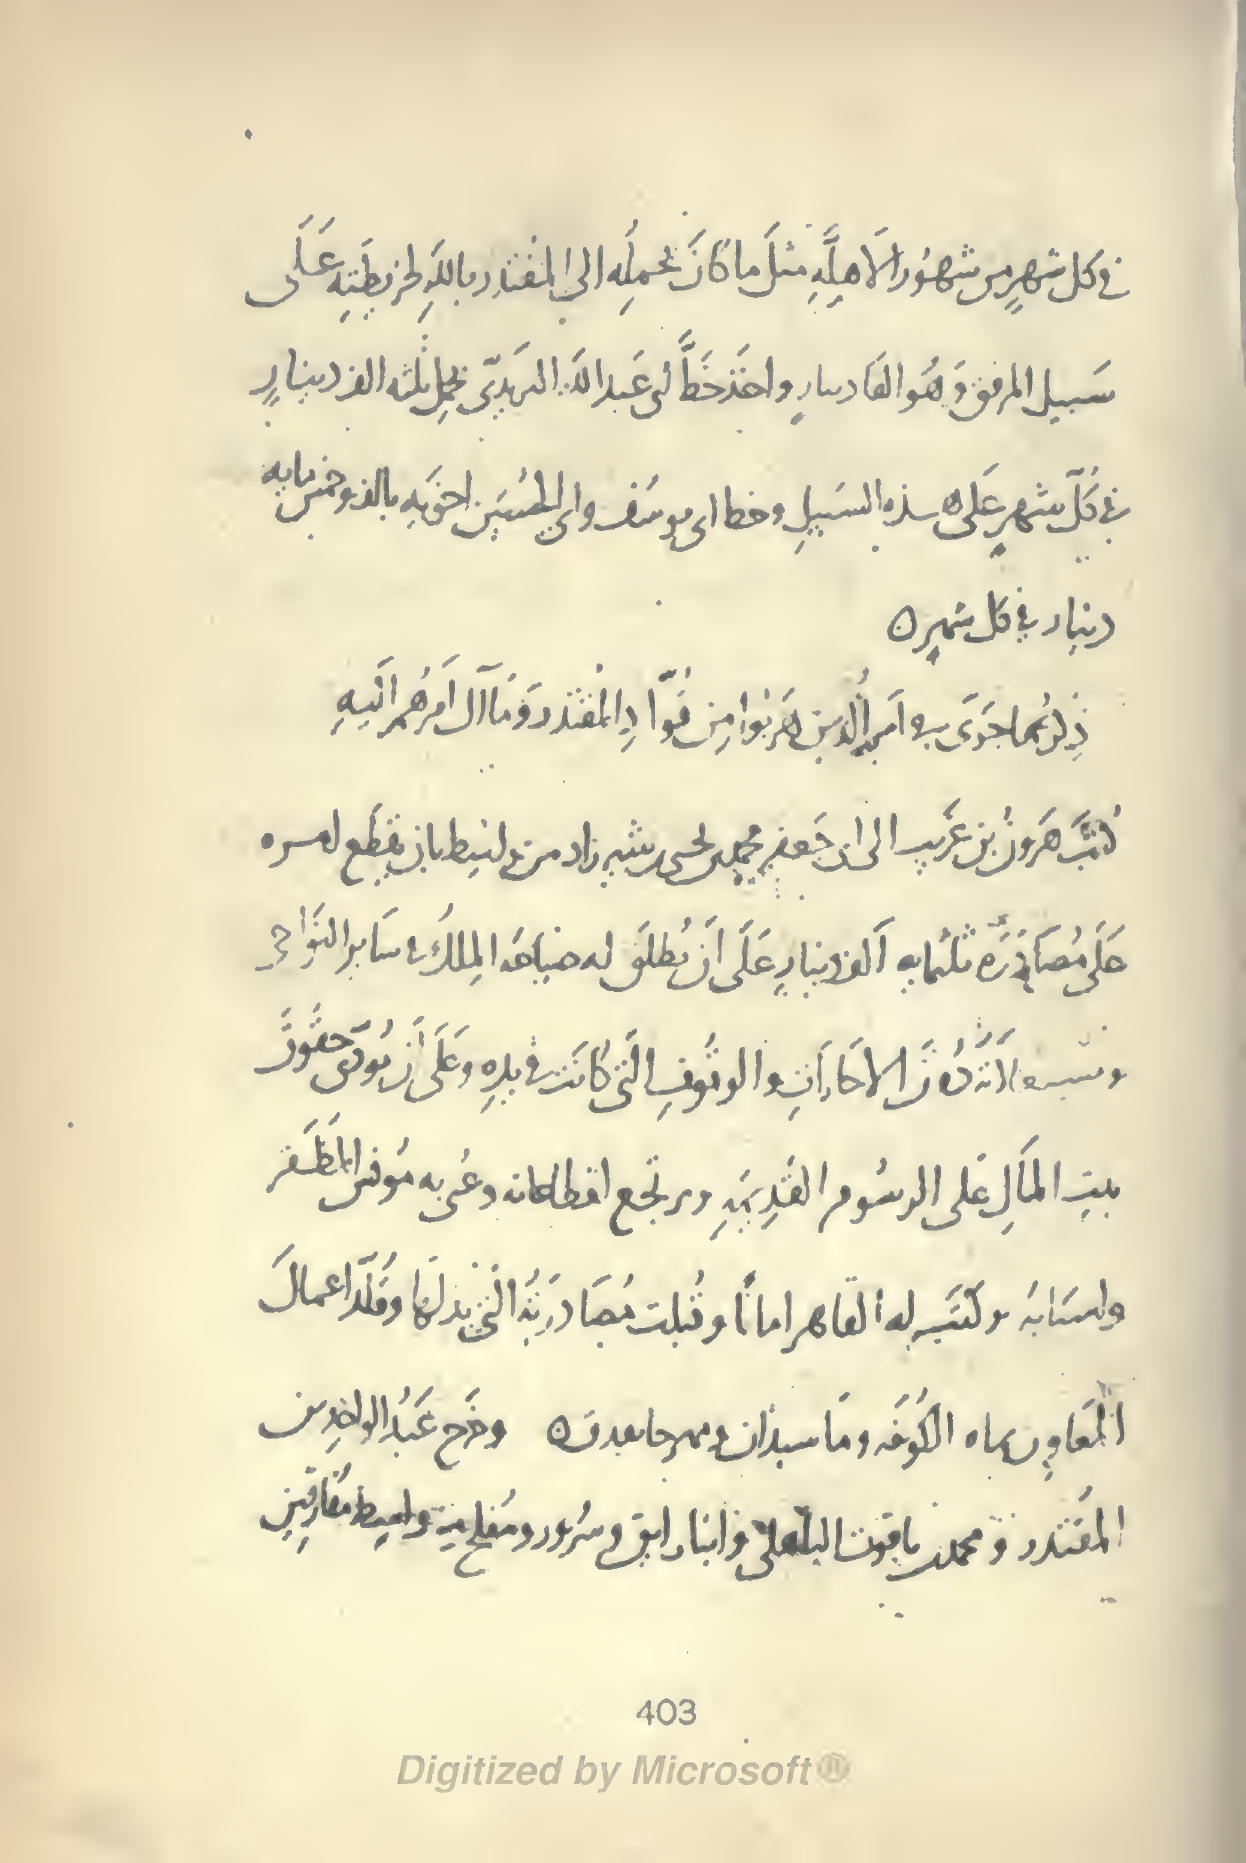 في كل شهرٍ من شهُور الَاهِلَّهِ مثلَ ما كانَ يحملُه الى المُقتدر باللهِ لخريطَتِه عَلَى
سَبيل المرفق وَهُو الفا دينارٍ واخَذ خَطَّ ابى عَبد الله البَريدىّ بحمل ثلثه الف دينارٍ
في كُلّ شهرٍ عَلى هذه السَبيلِ وخط ابى يوسُف وابي الحسَين اخوَيه بالف وخمس مايه
دينار في كل شهرٍ ه
ذِكرُ ما جَرَى في امر الذين هَربُوا مِن قُوّادِ المُقتدر وَمَا آل اَمرُهُم اليَهِ
كتَبَ هَرونُ بن غَريب الى ابى جَعفر محمد بن يحيى بن شيرزاد من واسِط بان يقطَع امره
عَلَى مُصَادَرَه ثلثمايه الف دينارٍ عَلَى اَن يُطلَق له ضياعه المِلك في ساير النَوَاحى
دُونَ الاجَارَاتِ والوقُوفِ الَّتى كانَت في يدِه وَعَلَى اَن يُودّى حقُوقَ
بيتِ المَالِ عَلى الرسُوم القَديمَهِ ويرتجع اقطاعاته وعُنى به مُونس المظَفر
وكتَب له القاهر امانًا وقُبلت مُصَادَرَتُه الَّتى بذلَها وقُلّد اعمالَ
المَعَاوِن بماه الكُوفَه ومَاسبذان ومهرجانقذق ه وخرَج عَبدُ الواحِد بن
المُقتدر ومحمد بن ياقوت وابنا رايق وسُرُور ومُفلح من واسِط مُفَارقِين
403
Digitized by Microsoft®